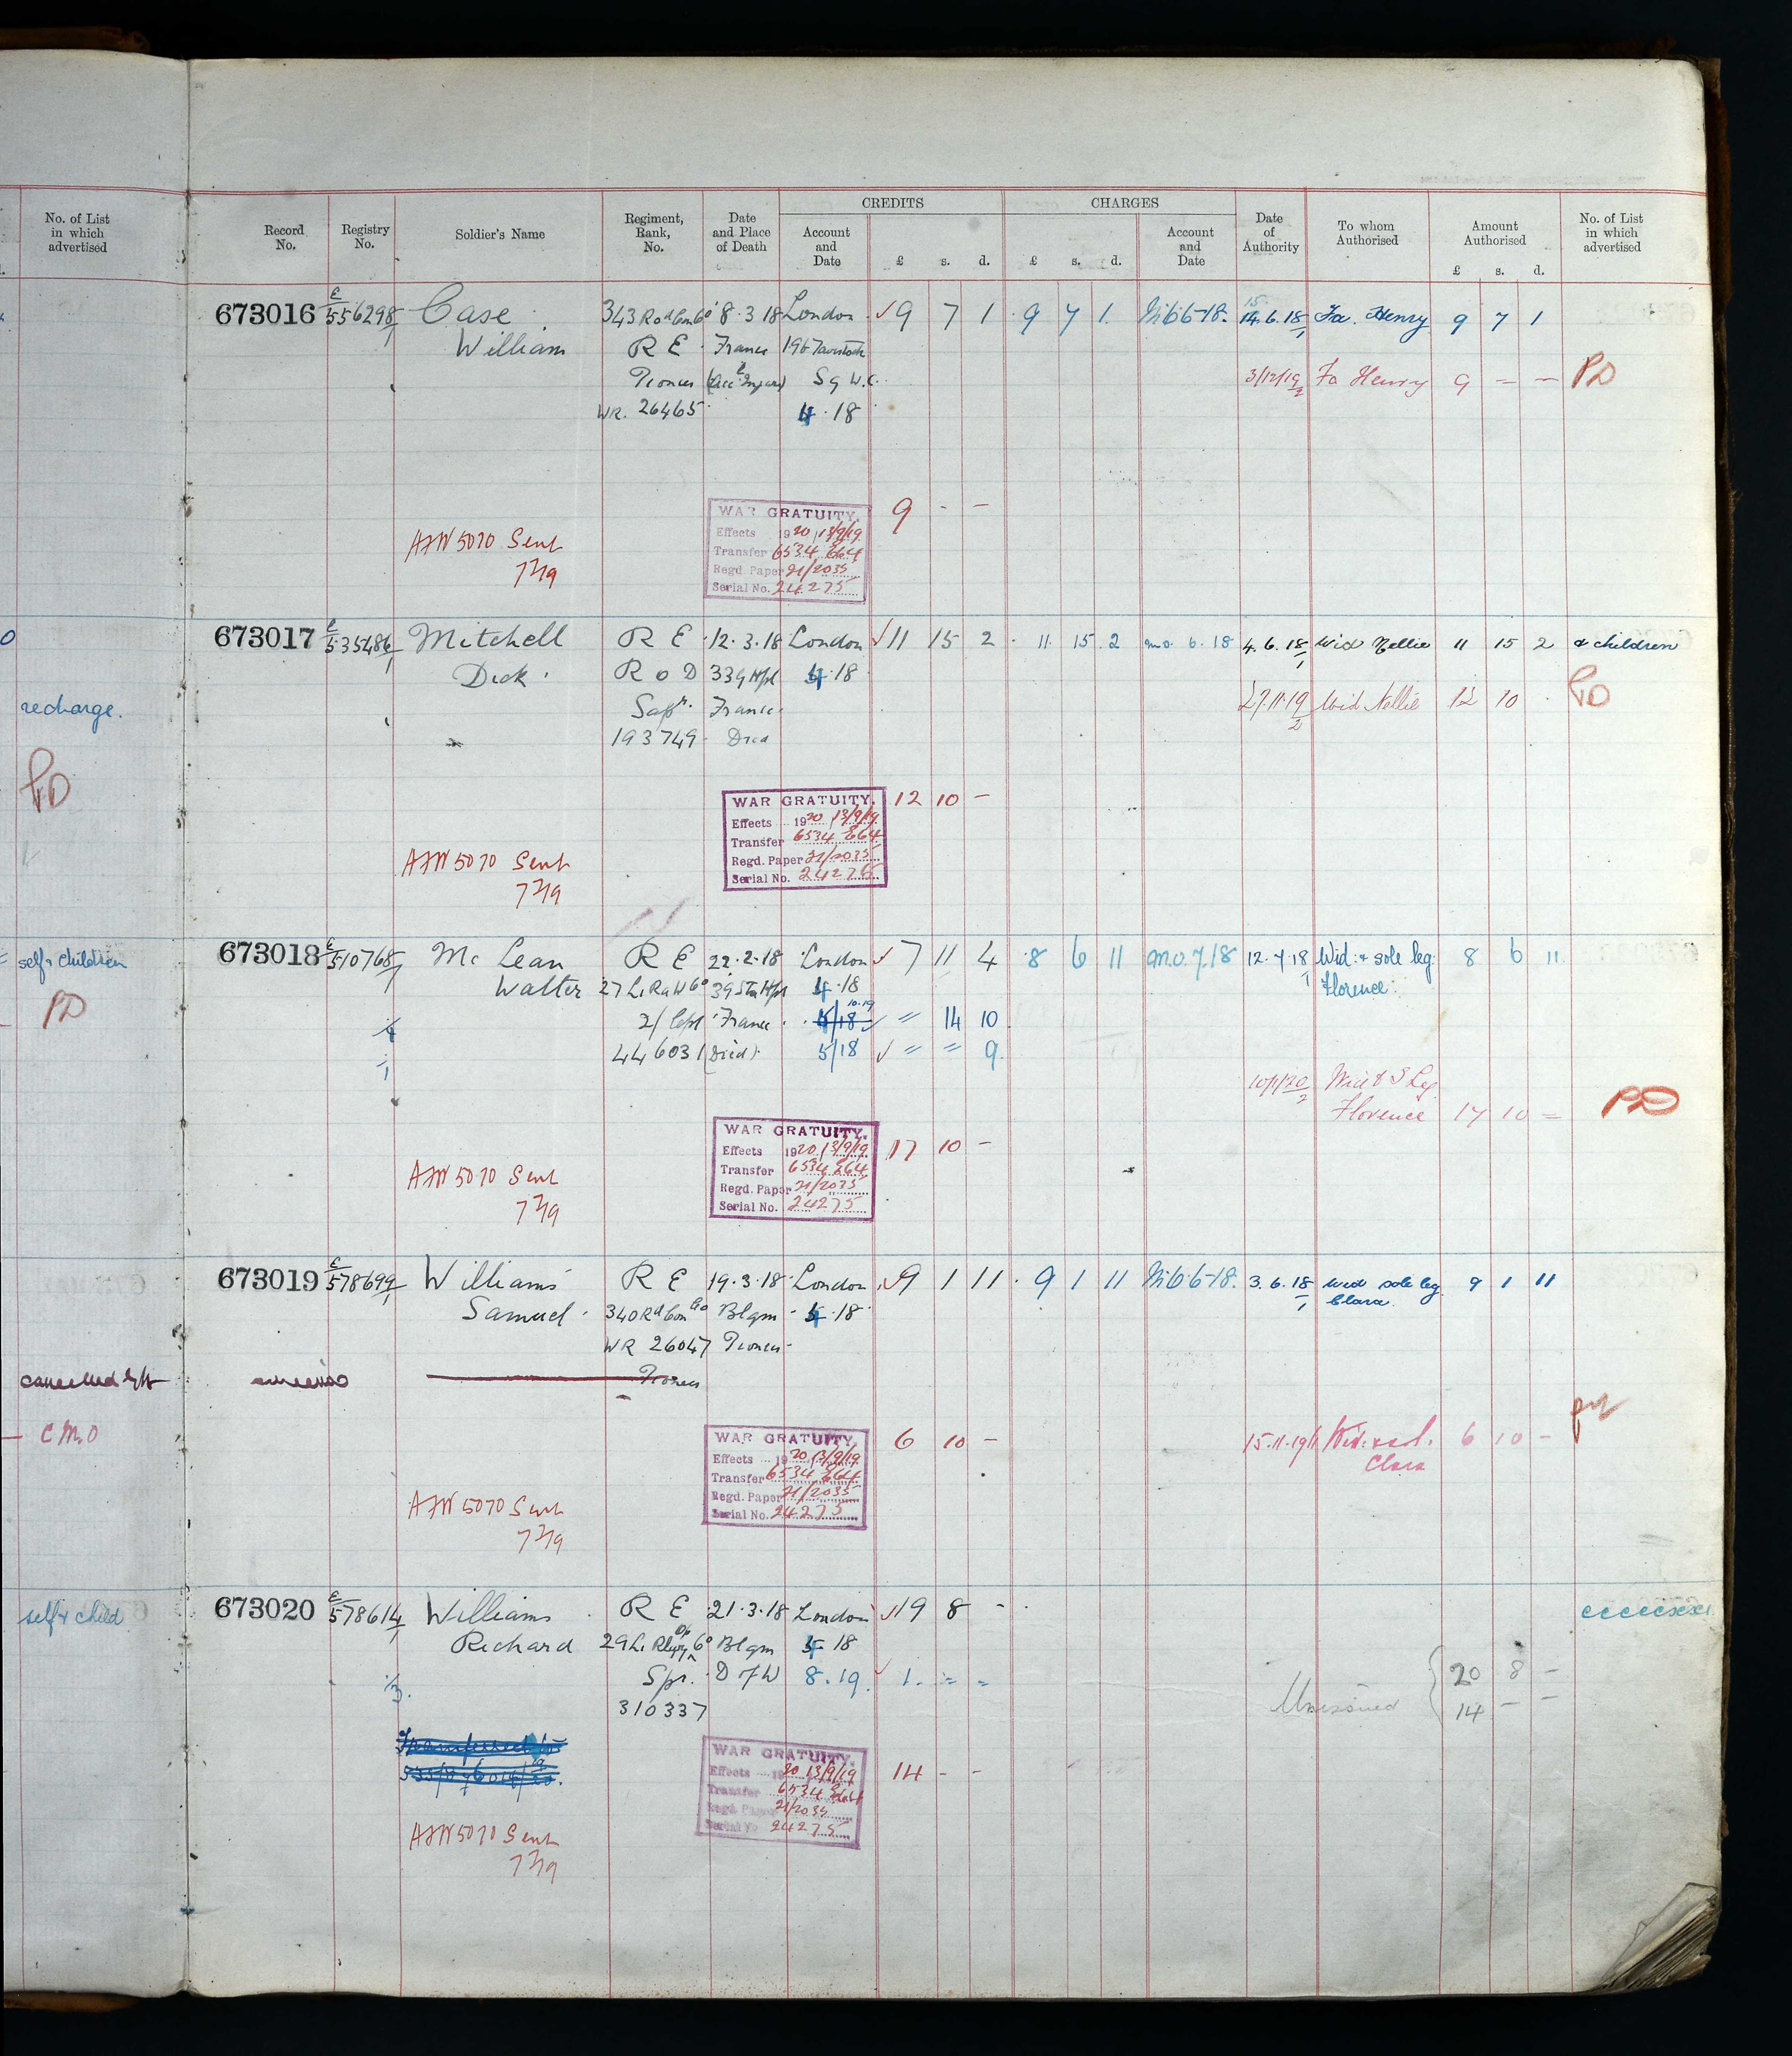 No. of List
in which
advertised
recharge.
PD
self & children
PD
cancelled
C M O
self & child
Record
No.
Registry
No.
Soldier's Name
Regiment,
Rank,
No.
Date
and Place
of Death
CREDITS
Account
and
Date
£ s. d.
CHARGES
£ s. d.
Account
and
Date
Date
of
Authority
To whom
Authorised
Amount
Authorised
£ s. d.
No. of List
in which
advertised
673016 E/556298/1 Case 343 Rd Con Co 8.3.18 London 9 7 1 9 7 1 6.18. 14.6.18 Fa. Henry 9 7 1
William R E France 19 Tavistock
Pioneer (Acc. Injured) Sq W.C.
3/12/19 Fa Henry 9 – – PD
WR. 26465 4.18
WAR GRATUITY. 9 - –
Effects 1920 13/9/19
Transfer 6534 664
Regd. Paper 21/2035
Serial No. 24275
AFW 5070 Sent
673017 E/535486/1 Mitchell R E 12.3.18 London 11 15 2 11 15 2 mo. 6.18 4.6.18 Wid Nellie 11 15 2 & children
Dick R O D 39 G Hpl 4.18
27.11.19 Wid Nellie 12 10 PD
Sapr. France
193749 Died
WAR GRATUITY. 12 10 –
Effects 1920 13/9/19
Transfer 6534 664
Regd. Paper 21/2035
Serial No. 24275
AFW 5070 Sent
673018 E/510768/1 Mc Lean R E 22.2.18 London 7 11 4 8 6 11 mo. 7.18 12.7.18 Wid: & sole leg: 8 6 11
Walter 27 L. Ra W Co 39 Sta Hpl 4.18 Florence
2/ Cpl France 14 10
446031 (Died) 5/18 = = 9
10/1/20 Wid & S Leg
Florence 17 10 = PD
WAR GRATUITY. 17 10 –
Effects 1920 13/9/19
Transfer 6534 664
Regd. Paper 21/2035
Serial No. 24275
AFW 5070 Sent
673019 E/578699/1 Williams R E 19.3.18 London 9 1 11 9 1 11 6.18. 3.6.18 Wid sole leg 9 1 11
Samuel 340 Rd Con Co Blgm 4.18 Clara
WR 26047 Pioneer
Pioneer
WAR GRATUITY. 6 10 – 15.11.19 Wid: & sol. 6 10 –
Clara
Effects 1920 13/9/19
Transfer 6534 664
Regd. Paper 21/2035
Serial No. 24275
AFW 5070 Sent
673020 E/578614/1 Williams R E 21.3.18 London 19 8 -
Richard 29 L. Rlwy Op Co Blgm 4 18
Spr. D of W 8.19. 1. = =
20 8 –
310337
14 – –
WAR GRATUITY. 14 - -
Effects 1920 13/9/19
Transfer 6534 664
Regd. Paper 21/2035
Serial No. 24275
AFW 5070 Sent